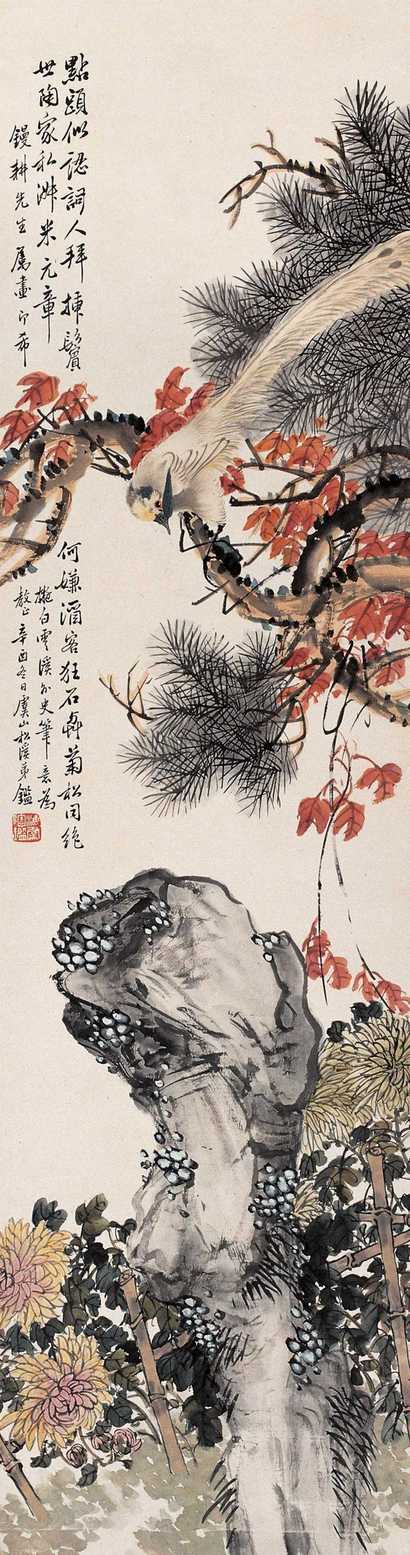 點頭似認詞人拜揷鬢
何嫌酒客狂石與菊松同絕
世陶家私淑米元章
擬白雲溪外史筆意為
鏝耕先生屬畫即希
教正辛酉冬日虞山松溪弟鑑